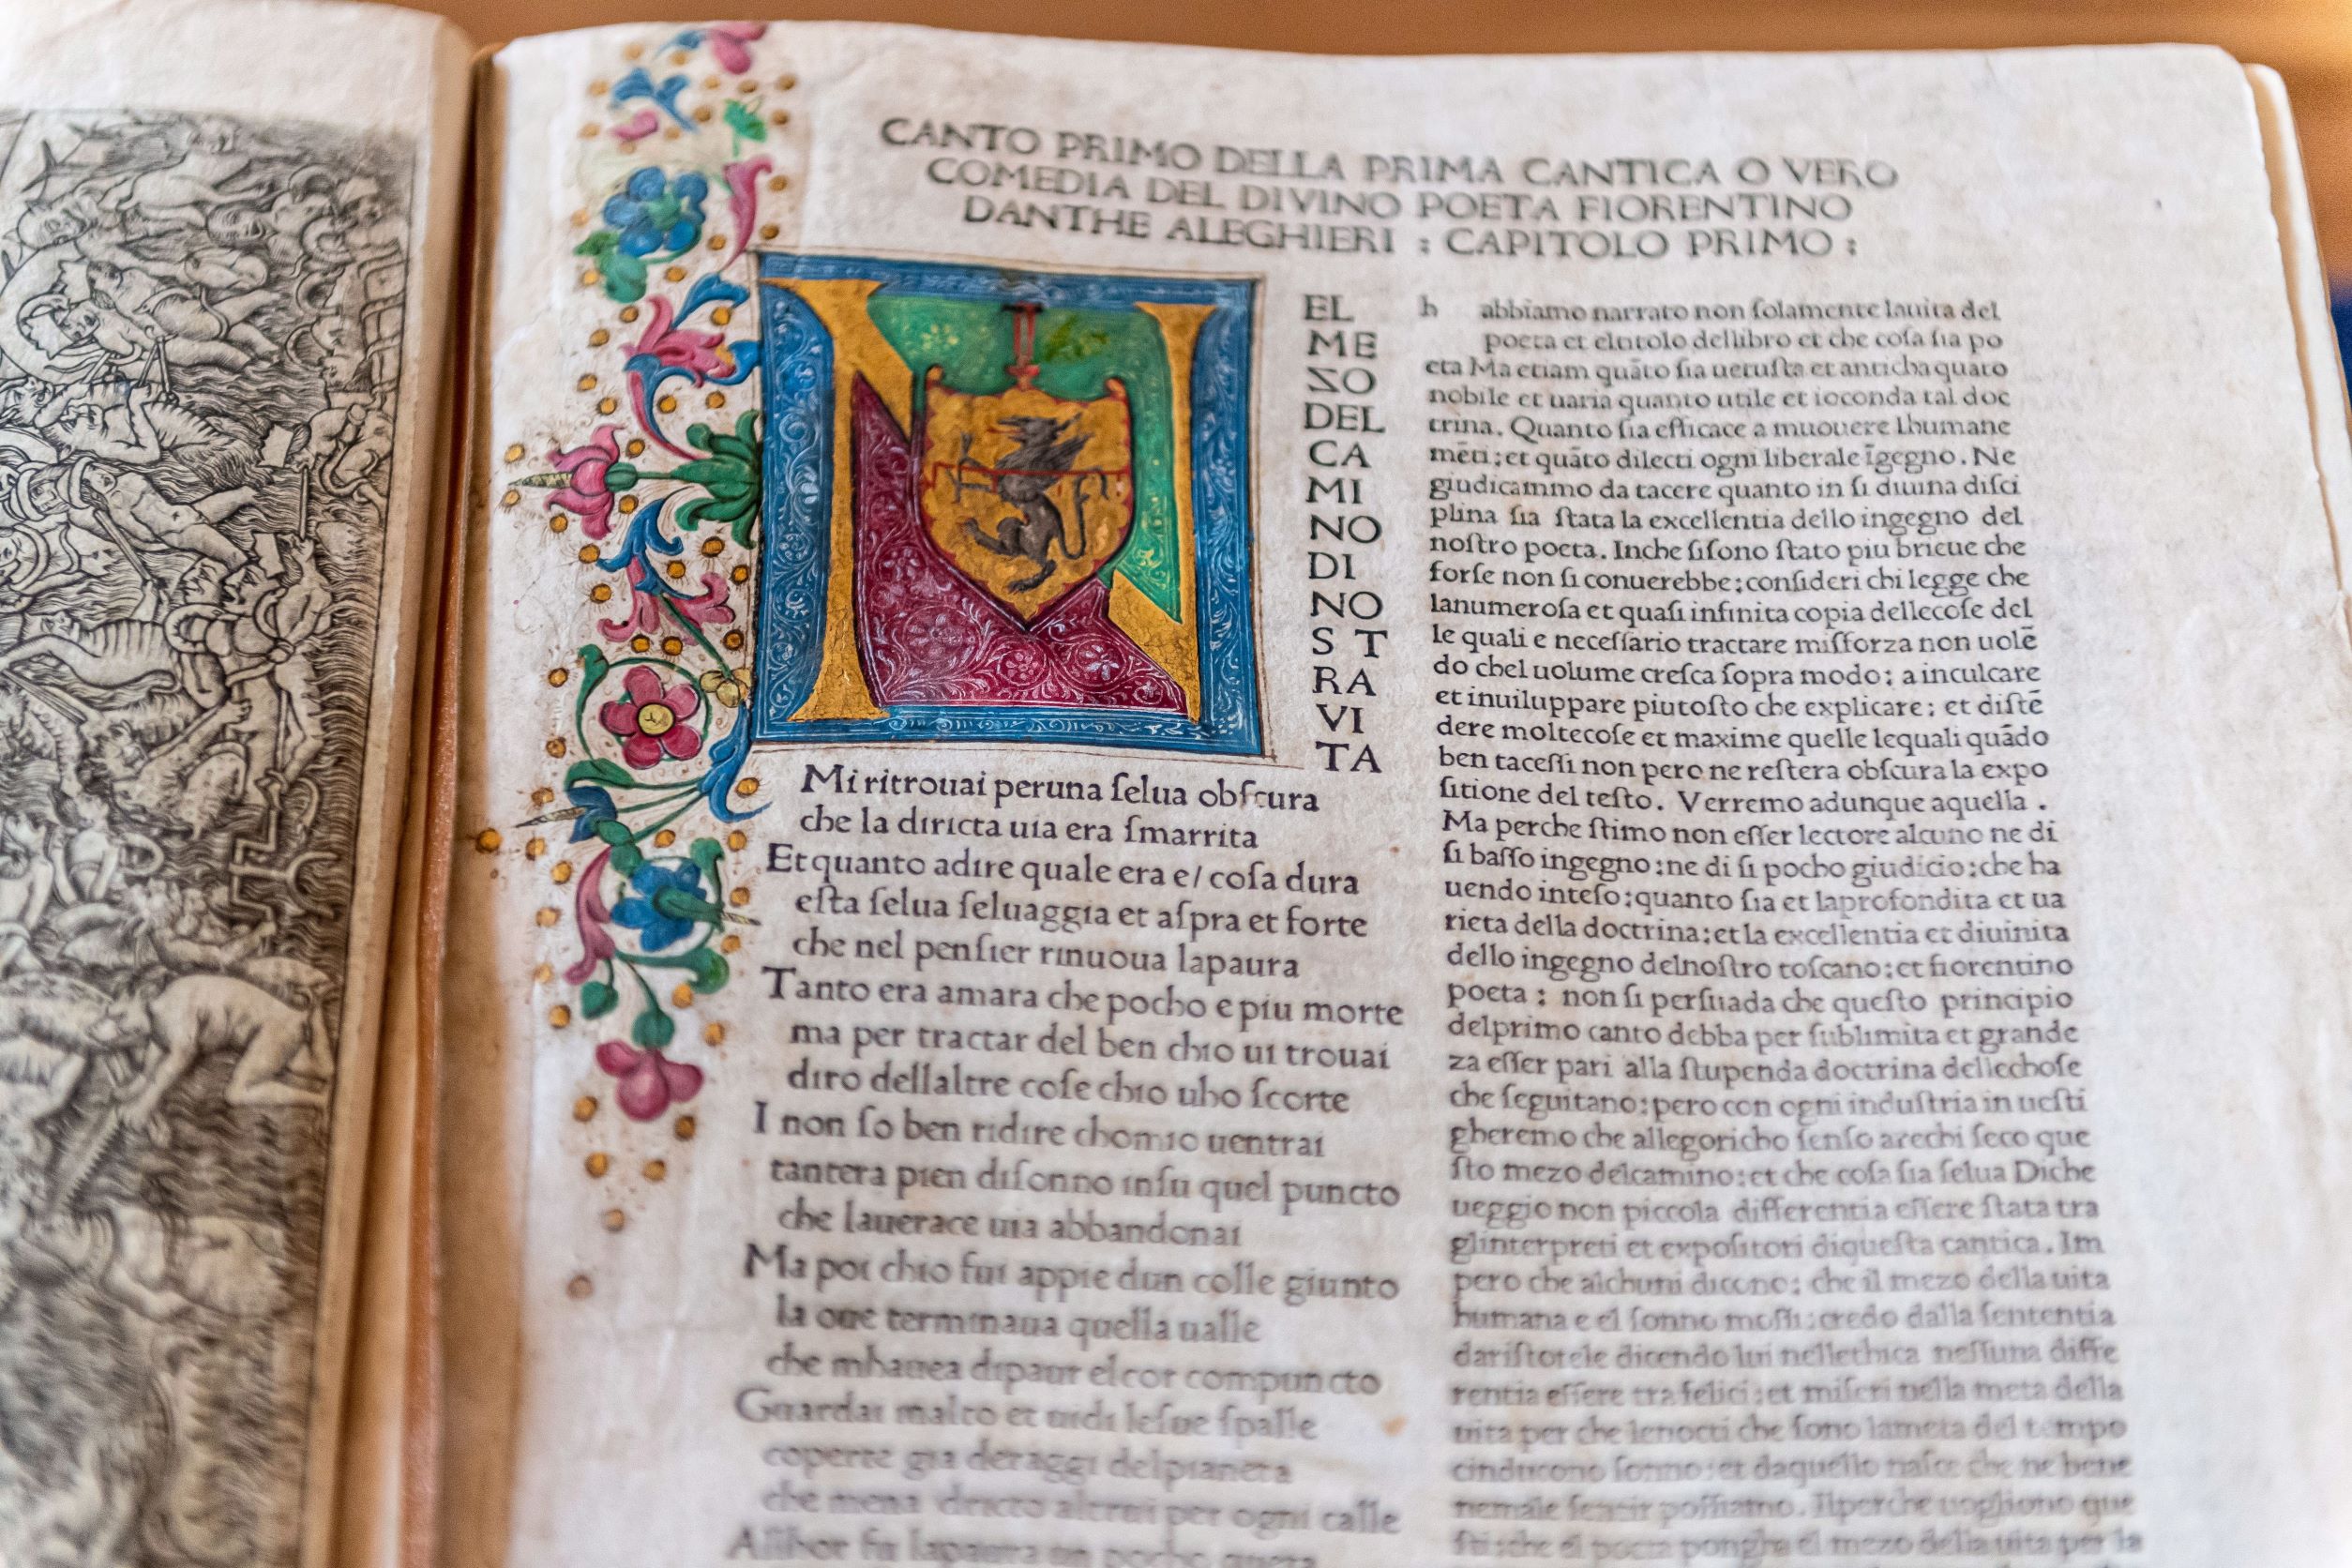 CANTO PRIMO DELLA PRIMA CANTICA O VERO
COMEDIA DEL DIVINO POETA FIORENTINO
DANTHE ALEGHIERI : CAPITOLO PRIMO :
N
EL
ME
ZO
DEL
CA
MI
NO
DI
NO
S T
RA
VI
TA
Mi ritrouai peruna ſelua obſcura
che la diricta uia era ſmarrita
Et quanto adire quale era e/ coſa dura
eſta ſelua ſeluaggia et aſpra et forte
che nel penſier rinuoua lapaura
Tanto era amara che pocho e piu morte
ma per tractar del ben chio ui trouai
diro dellaltre coſe chio uho ſcorte
I non ſo ben ridire chomio uentrai
tantera pien diſonno inſu quel puncto
che lauerace uia abbandonai
Ma poi chio fui appie dun colle giunto
la oue terminaua quella ualle
che mhauea dipaur el cor compuncto
Guardai in alto et uidi leſue ſpalle
coperte gia deraggi delpianeta
che mena dricto altrui per ogni calle
Allhor fu lapaura un pocho queta
h abbiamo narrato non ſolamente lauita del
poeta et eltitolo dellibro et che coſa ſia po
eta Ma etiam quāto ſia uetuſta et anticha quāto
nobile et uaria quanto utile et ioconda tal doc
trina. Quanto ſia efficace a muouere lhumane
mēti; et quāto dilecti ogni liberale īgegno. Ne
giudicammo da tacere quanto in ſi diuina diſci
plina ſia ſtata la excellentia dello ingegno del
noſtro poeta. Inche ſiſono ſtato piu brieue che
forſe non ſi conuerebbe; conſideri chi legge che
lanumeroſa et quaſi infinita copia dellecoſe del
le quali e neceſſario tractare miſforza non uolē
do chel uolume creſca ſopra modo; a inculcare
et inuiluppare piutoſto che explicare; et diſtē
dere moltecoſe et maxime quelle lequali quādo
ben taceſſi non pero ne reſtera obſcura la expo
ſitione del teſto. Verremo adunque aquella .
Ma perche ſtimo non eſſer lectore alcuno ne di
ſi baſſo ingegno; ne di ſi pocho giudicio; che ha
uendo inteſo; quanto ſia et laprofondita et ua
rieta della doctrina; et la excellentia et diuinita
dello ingegno delnoſtro toſcano; et fiorentino
poeta ; non ſi perſuada che queſto principio
delprimo canto debba per ſublimita et grande
za eſſer pari alla ſtupenda doctrina dellechoſe
che ſeguitano; pero con ogni induſtria in ueſti
gheremo che allegoricho ſenſo arechi ſeco que
ſto mezo delcamino; et che coſa ſia ſelua Diche
ueggio non piccola differentia eſſere ſtata tra
glinterpreti et expoſitori diqueſta cantica. Im
pero che alchuni dicono; che il mezo della uita
humana e el ſonno moſſi; credo dalla ſententia
dariſtotele dicendo lui nellethica neſſuna diffe
rentia eſſere tra felici; et miſeri nella meta della
uita per che lenocti che ſono lameta del tempo
cinducono ſonno; et daquello naſce che ne bene
nemale ſentir poſſiamo. Ilperche uogliono que
ſti; che el poeta pongha el mezo della uita per la